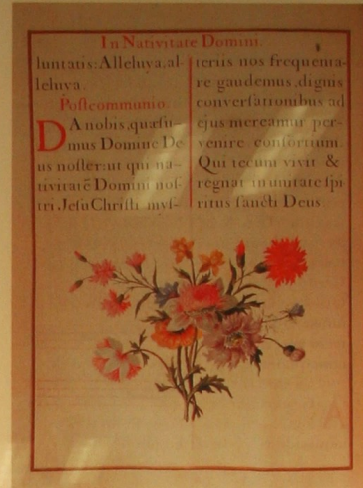 In Nativitate Domini.
luntatis: Alleluya, al-
leluya.
Postcommunio.
DA nobis, quæsu-
mus Domine De-
us noster: ut qui na-
tivitatē Domini nos-
tri Jesu Christi mys-
teriis nos frequenta-
re gaudemus, dignis
conversationibus ad
ejus mereamur per-
venire consortium.
Qui tecum vivit &
regnat in unitate spi-
ritus sancti Deus